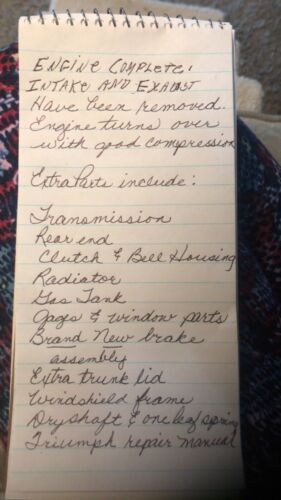 ENGINE COMPLETE.
INTAKE AND EXAUST
Have been removed.
Engine turns over
with good compression
Extra Parts include:
Transmission
Rear end
Clutch & Bell Housing
Radiator
Gas Tank
Gages & window parts
Brand New brake
assembly
Extra trunk lid
Windshield frame
Dryshaft & one leaf spring
Triumph repair manual